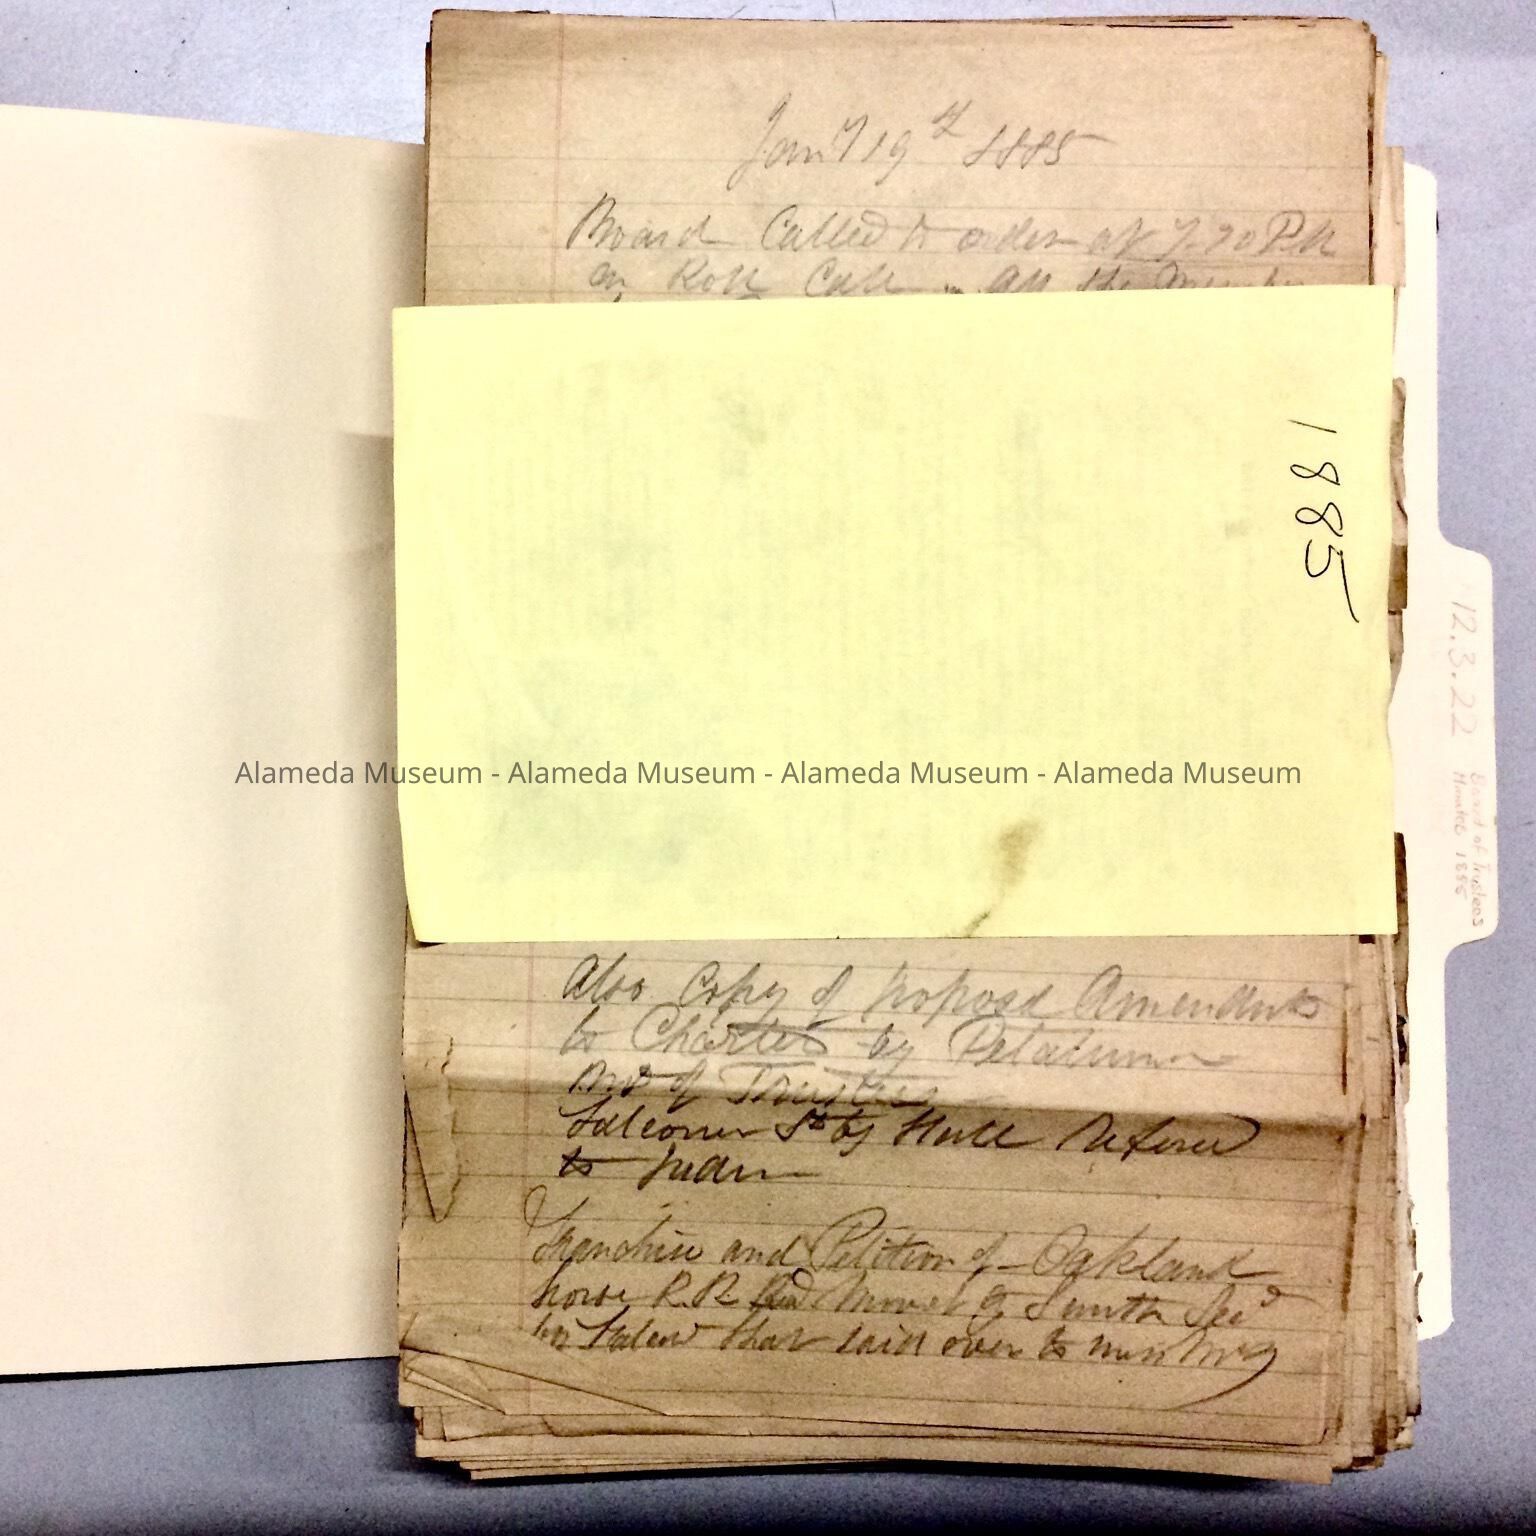 Jany 19th 1885
Board Called to order at 7-20 PM
on Roll Call all the
1885
12.3.22 Board of Trustees
Minutes 1885
Alameda Museum - Alameda Museum - Alameda Museum - Alameda Museum
Also Copy of proposd Amendmts
to Charter by Petaluma
of Trustees
by Hall Refered
to
Franchise and Petition of Oakland
horse R.R. Moved by Smith Secd
by that laid over to next